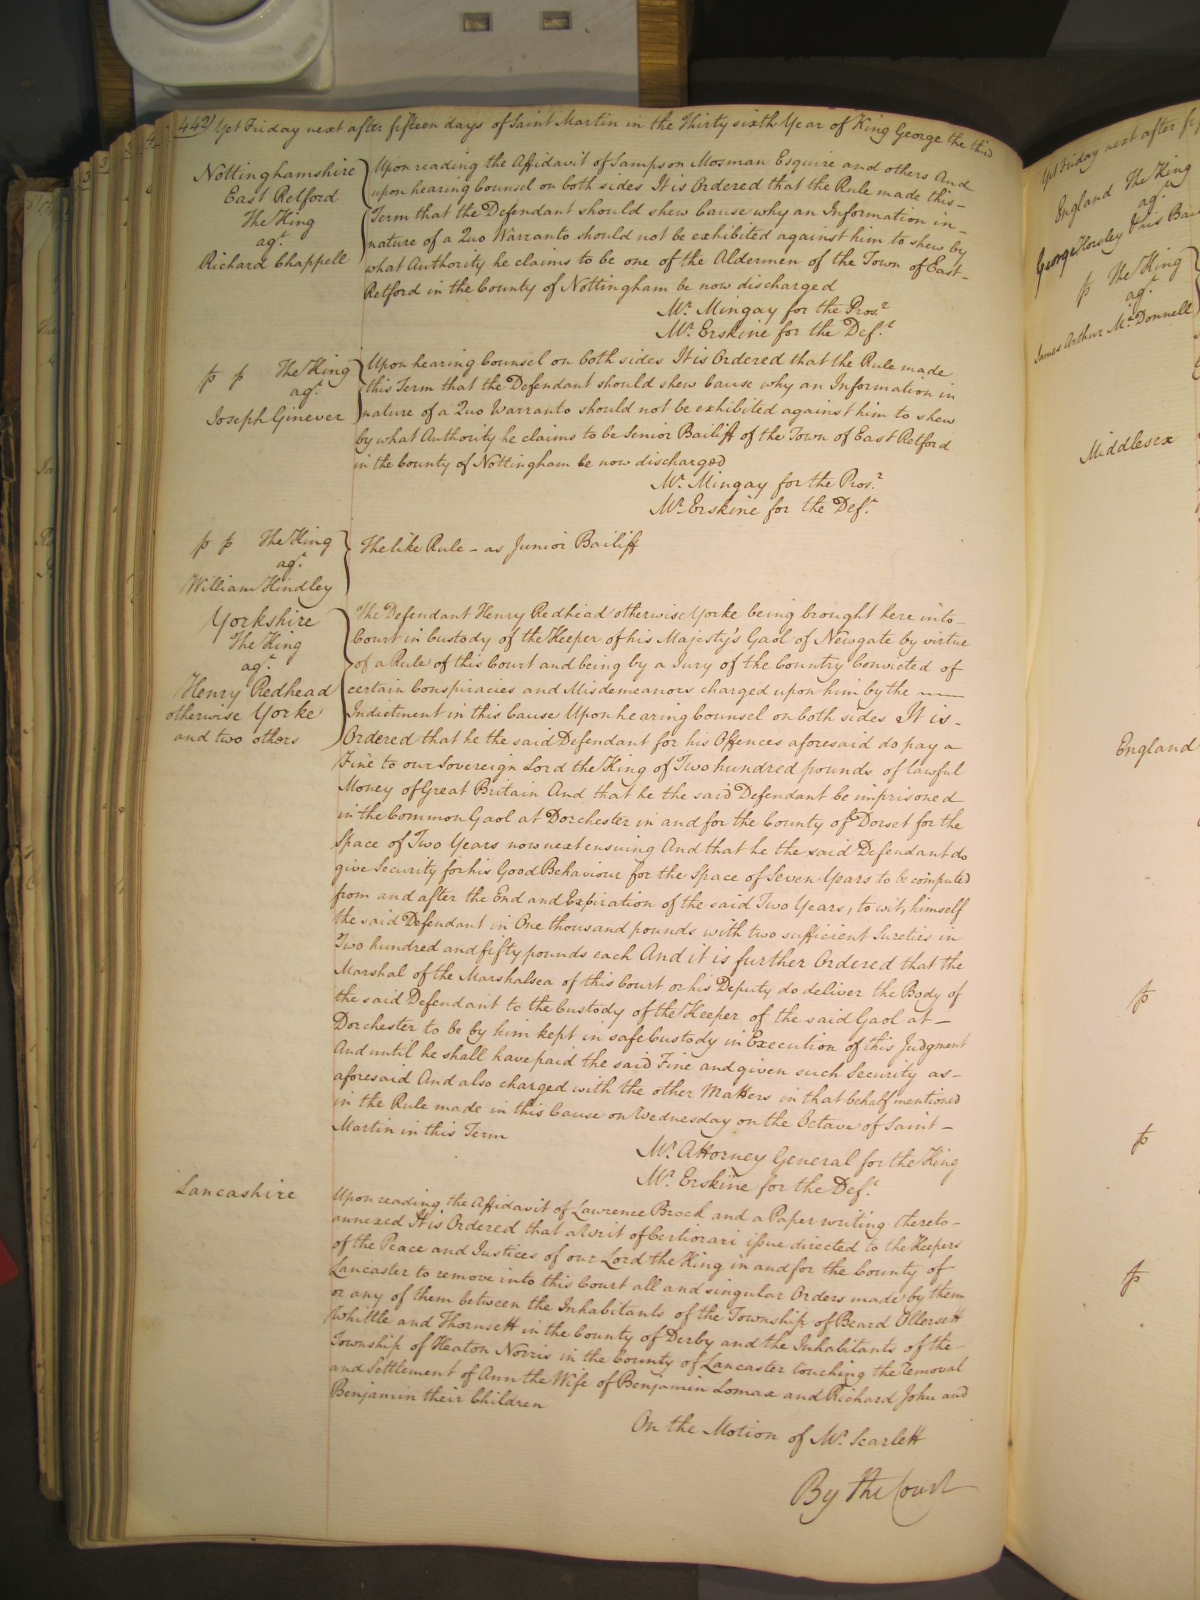 442) Yet Friday next after fifteen days of Saint Martin in the Thirty sixth Year of King George the third
Nottinghamshire
East Retford
The King
agt.
Richard Chappell
Upon reading the Affidavit of Sampson Mosman Esquire and others And
upon hearing Counsel on both sides It is Ordered that the Rule made this
Term that the Defendant should shew Cause why an Information in
nature of a Quo Warranto should not be exhibited against him to shew by
what Authority he claims to be one of the Aldermen of the Town of East
Retford in the County of Nottingham be now discharged
Mr. Mingay for the Prosr.
Mr. Erskine for the Deft.
p p The King
agt.
Joseph Ginever
Upon hearing Counsel on both sides It is Ordered that the Rule made
this Term that the Defendant should shew Cause why an Information in
nature of a Quo Warranto should not be exhibited against him to shew
by what Authority he claims to be Senior Bailiff of the Town of East Retford
in the County of Nottingham be now discharged
Mr. Mingay for the Prosr.
Mr. Erskine for the Deft.
p p The King
agt.
William Hindley
The like Rule - as Junior Bailiff
Yorkshire
The King
agt.
Henry Redhead
otherwise Yorke
and two others
The Defendant Henry Redhead otherwise Yorke being brought here into
Court in Custody of the Keeper of his Majesty's Gaol of Newgate by virtue
of a Rule of this Court and being by a Jury of the Country Convicted of
certain Conspiracies and Misdemeanors charged upon him by the
Indictment in this Cause Upon hearing Counsel on both sides It is
Ordered that he the said Defendant for his Offences aforesaid do pay a
Fine to our Sovereign Lord the King of Two hundred pounds of lawful
Money of Great Britain And that he the said Defendant be imprisoned
in the Common Gaol at Dorchester in and for the County of Dorset for the
Space of Two Years now next ensuing And that he the said Defendant do
give Security for his Good Behaviour for the Space of Seven Years to be computed
from and after the End and Expiration of the said Two Years, to wit, himself
the said Defendant in One thousand pounds with two sufficient Sureties in
Two hundred and fifty pounds each And it is further Ordered that the
Marshal of the Marshalsea of this Court or his Deputy do deliver the Body of
the said Defendant to the Custody of the Keeper of the said Gaol at
Dorchester to be by him kept in safe Custody in Execution of this Judgment
And until he shall have paid the said Fine and given such Security as
aforesaid And also charged with the other Matters in that behalf mentioned
in the Rule made in this Cause on Wednesday on the Octave of Saint
Martin in this Term
Mr. Attorney General for the King
Mr. Erskine for the Deft.
Lancashire
Upon reading the Affidavit of Lawrence Brock and a Paper writing thereto
annexed It is Ordered that a Writ of Certiorari issue directed to the Keepers
of the Peace and Justices of our Lord the King in and for the County of
Lancaster to remove into this Court all and singular Orders made by them
or any of them between the Inhabitants of the Township of Beard Ollersett
Whittle and Thornsett in the County of Derby and the Inhabitants of the
Township of Heaton Norris in the County of Lancaster touching the Removal
and Settlement of Ann the Wife of Benjamin Lomax and Richard John and
Benjamin their Children
On the Motion of Mr. Scarlett
By the Court
Yet Friday next after
England The King
agt.
George Horsley
p The King
agt.
James Arthur Mc.Donnell
Middlesex
England
p
p
p